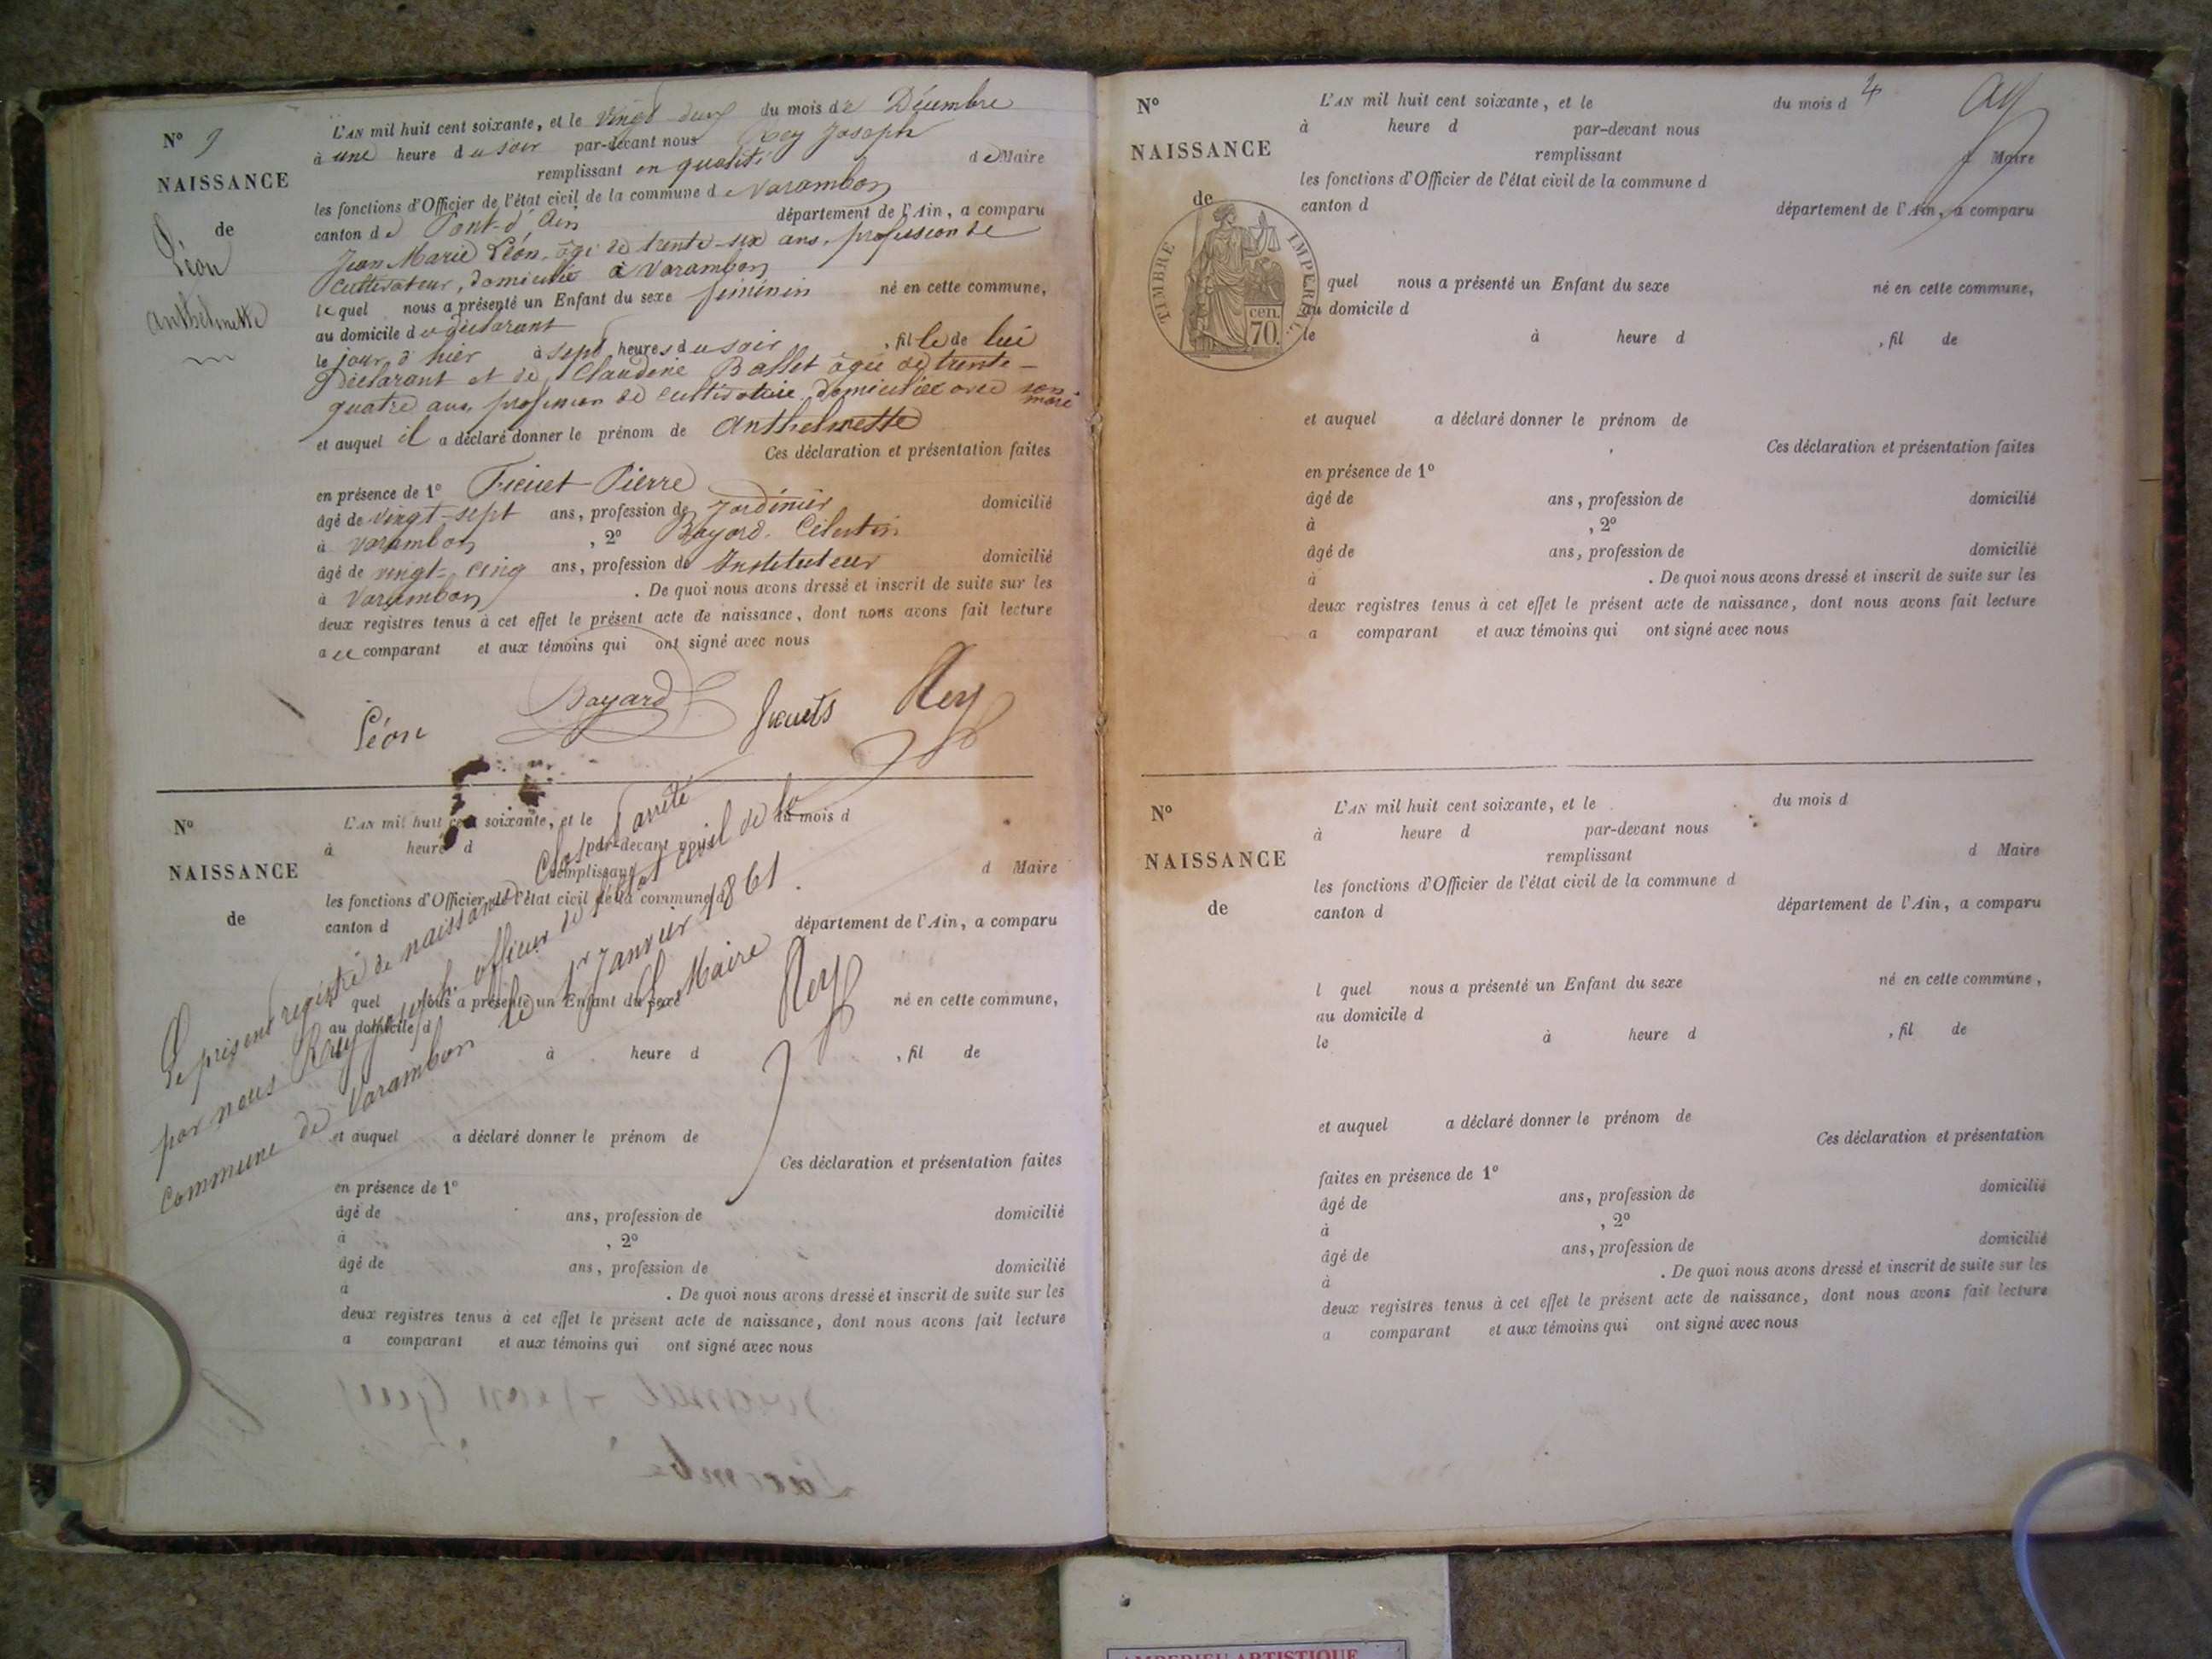 N° 9
NAISSANCE
de
Léon
Anthelmette
L'AN mil huit cent soixante, et le vingt-deux du mois de Décembre
à une heure du soir par-devant nous Rey Joseph
remplissant en qualité de Maire
les fonctions d'Officier de l'état civil de la commune de Varambon
canton de Pont-d'Ain département de l'Ain, a comparu
Jean Marie Léon, âgé de trente-six ans, profession de
Cultivateur, domicilié à Varambon
lequel nous a présenté un Enfant du sexe féminin né en cette commune,
au domicile du déclarant
le jour d'hier à sept heures du soir, fille de lui
Déclarant et de Claudine Bosset âgée de trente-
quatre ans, profession de cultivatrice domiciliée avec son
mari
et auquel il a déclaré donner le prénom de Anthelmette
Ces déclaration et présentation faites
en présence de 1° Pierre
âgé de vingt-sept ans, profession de Jardinier domicilié
à Varambon, 2° Bayard Célestin
âgé de vingt-cinq ans, profession de Instituteur domicilié
à Varambon. De quoi nous avons dressé et inscrit de suite sur les
deux registres tenus à cet effet le présent acte de naissance, dont nous avons fait lecture
au comparant et aux témoins qui ont signé avec nous
Léon Bayard Rey
N°
NAISSANCE
de
L'AN mil huit cent soixante, et le du mois d
à heure d par-devant nous
remplissant d Maire
les fonctions d'Officier de l'état civil de la commune d
canton d département de l'Ain, a comparu
quel nous a présenté un Enfant du sexe né en cette commune,
au domicile d
à heure d, fil de
et auquel a déclaré donner le prénom de
Ces déclaration et présentation faites
en présence de 1°
âgé de ans, profession de domicilié
à, 2°
âgé de ans, profession de domicilié
à. De quoi nous avons dressé et inscrit de suite sur les
deux registres tenus à cet effet le présent acte de naissance, dont nous avons fait lecture
a comparant et aux témoins qui ont signé avec nous
Le présent registre de naissance Clos et arrêté
par nous Rey Joseph officier de l'état civil de la
Commune de Varambon le 1er Janvier 1861.
Le Maire
Rey
N°
NAISSANCE
de
TIMBRE IMPERIAL
70 cen.
4
Rey
L'AN mil huit cent soixante, et le du mois d
à heure d par-devant nous
remplissant d Maire
les fonctions d'Officier de l'état civil de la commune d
canton d département de l'Ain, a comparu
quel nous a présenté un Enfant du sexe né en cette commune,
au domicile d
le à heure d, fil de
et auquel a déclaré donner le prénom de
Ces déclaration et présentation faites
en présence de 1°
âgé de ans, profession de domicilié
à, 2°
âgé de ans, profession de domicilié
à. De quoi nous avons dressé et inscrit de suite sur les
deux registres tenus à cet effet le présent acte de naissance, dont nous avons fait lecture
a comparant et aux témoins qui ont signé avec nous
N°
NAISSANCE
de
L'AN mil huit cent soixante, et le du mois d
à heure d par-devant nous
remplissant d Maire
les fonctions d'Officier de l'état civil de la commune d
canton d département de l'Ain, a comparu
l quel nous a présenté un Enfant du sexe né en cette commune,
au domicile d
le à heure d, fil de
et auquel a déclaré donner le prénom de
Ces déclaration et présentation
faites en présence de 1°
âgé de ans, profession de domicilié
à, 2°
âgé de ans, profession de domicilié
à. De quoi nous avons dressé et inscrit de suite sur les
deux registres tenus à cet effet le présent acte de naissance, dont nous avons fait lecture
a comparant et aux témoins qui ont signé avec nous
AMBERIEU ARTISTIQUE